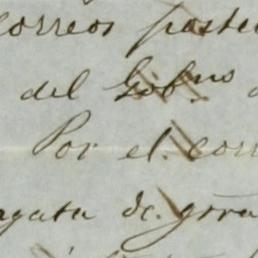 correos poste
del Gob.no
Por el corr
agata de gra